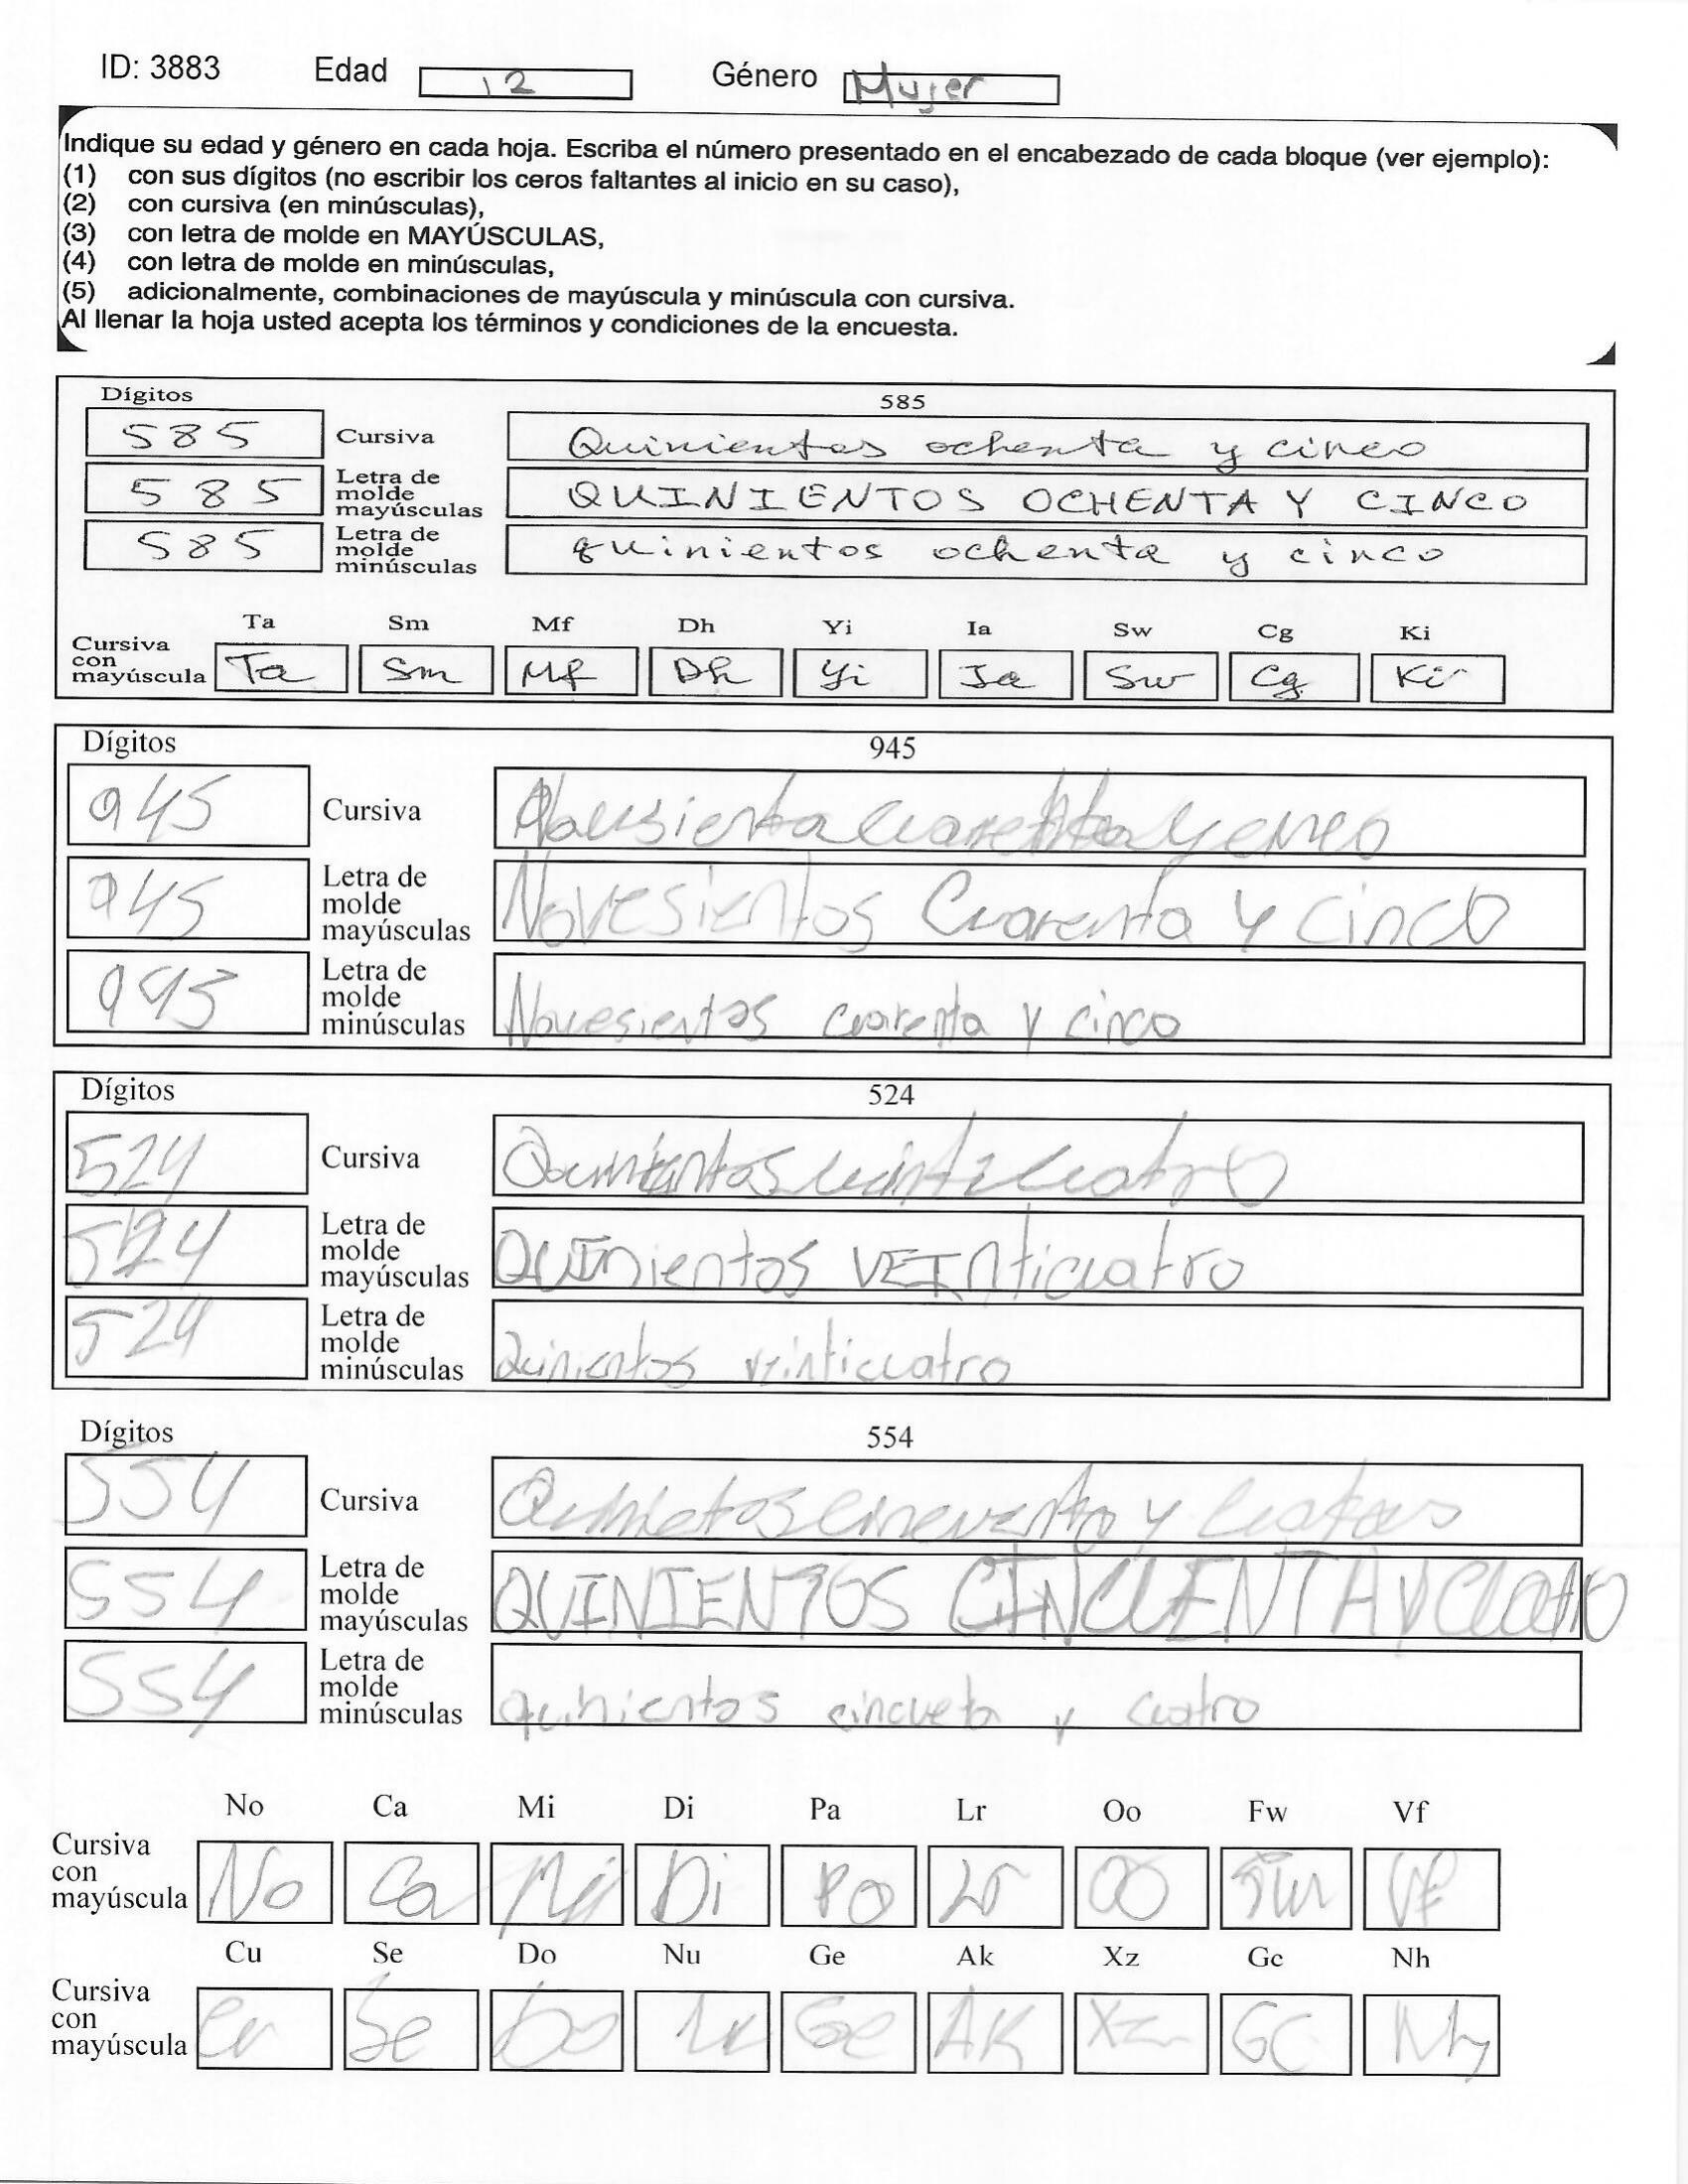 ID: 3883 Edad 12 Género Mujer
Indique su edad y género en cada hoja. Escriba el número presentado en el encabezado de cada bloque (ver ejemplo):
(1) con sus dígitos (no escribir los ceros faltantes al inicio en su caso),
(2) con cursiva (en minúsculas),
(3) con letra de molde en MAYÚSCULAS,
(4) con letra de molde en minúsculas,
(5) adicionalmente, combinaciones de mayúscula y minúscula con cursiva.
Al llenar la hoja usted acepta los términos y condiciones de la encuesta.
Dígitos 585
585 Cursiva Quinientos ochenta y cinco
585 Letra de molde mayúsculas QUINIENTOS OCHENTA Y CINCO
585 Letra de molde minúsculas quinientos ochenta y cinco
Ta Sm Mf Dh Yi Ia Sw Cg Ki
Cursiva con mayúscula Ta Sm Mf Dh Yi Ia Sw Cg Ki
Dígitos 945
945 Cursiva
945 Letra de molde mayúsculas Novesientos Cuarenta y cinco
945 Letra de molde minúsculas Novesientos cuarenta y cinco
Dígitos 524
524 Cursiva
524 Letra de molde mayúsculas QUINientos VEINticuatro
524 Letra de molde minúsculas Quinientos veinticuatro
Dígitos 554
554 Cursiva y
554 Letra de molde mayúsculas QUINIENTOS CINCUENTA Y Cuatro
554 Letra de molde minúsculas quinientos cincueta y cuatro
No Ca Mi Di Pa Lr Oo Fw Vf
Cursiva con mayúscula No Ca Mi Di Pa Lr Oo Fw Vf
Cu Se Do Nu Ge Ak Xz Gc Nh
Cursiva con mayúscula Cu Se Do Nu Ge AK Xz GC Nh